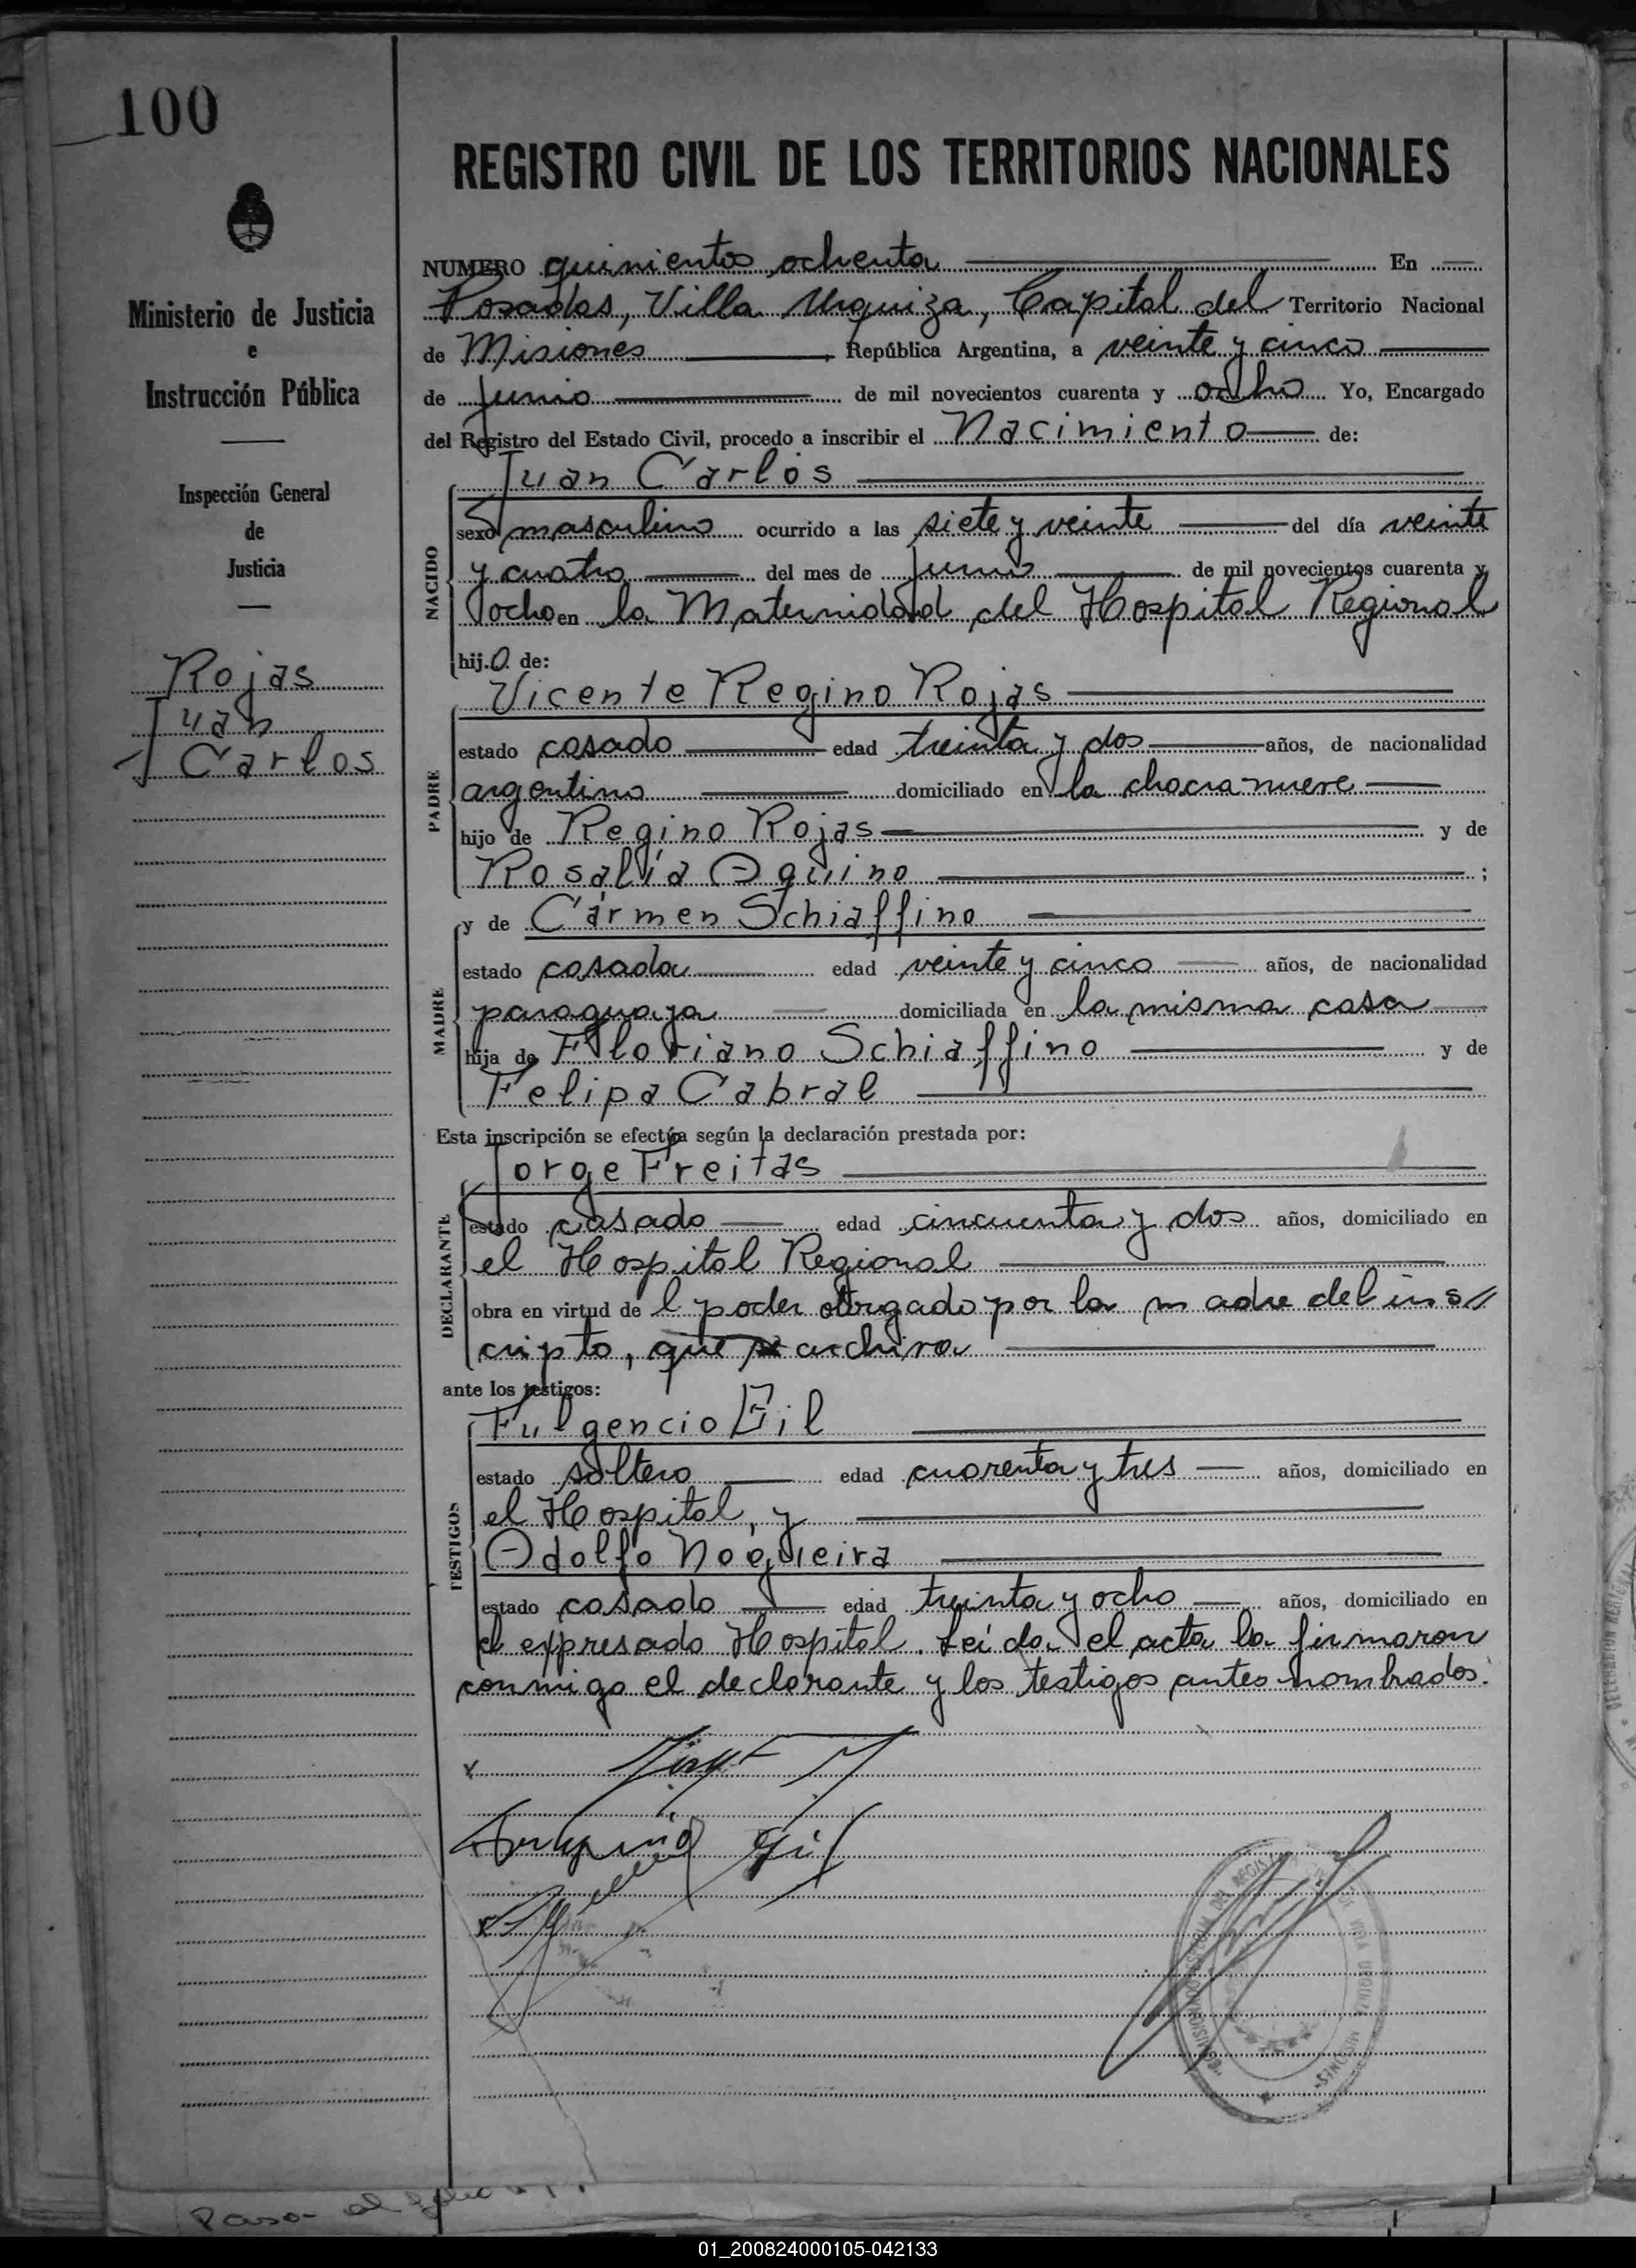 100
Ministerio de Justicia
e
Instrucción Pública
Inspección General
de
Justicia
Rojas
Juan
Carlos
REGISTRO CIVIL DE LOS TERRITORIOS NACIONALES
NUMERO quinientos ochenta En
Posadas, Villa Urquiza, Capital del Territorio Nacional
de Misiones, República Argentina, a veinte y cinco
de Junio de mil novecientos cuarenta y ocho Yo, Encargado
del Registro del Estado Civil, procedo a inscribir el Nacimiento de:
Juan Carlos
NACIDO
sexo masculino ocurrido a las siete y veinte del día veinte
y cuatro del mes de Junio de mil novecientos cuarenta y
ocho en la Maternidad del Hospital Regional
hijo de:
Vicente Regino Rojas
PADRE
estado casado edad treinta y dos años, de nacionalidad
argentino domiciliado en la chacra nueve
hijo de Regino Rojas y de
Rosalía Aquino ;
y de Cármen Schiaffino
MADRE
estado casada edad veinte y cinco años, de nacionalidad
paraguaya domiciliada en la misma casa
hija de Floriano Schiaffino y de
Felipa Cabral
Esta inscripción se efectúa según la declaración prestada por:
Jorge Freitas
DECLARANTE
estado casado edad cincuenta y dos años, domiciliado en
el Hospital Regional
obra en virtud de l poder otorgado por la madre del ins//
cripto, que se archiva
ante los testigos:
Fulgencio Gil
TESTIGOS
estado soltero edad cuarenta y tres años, domiciliado en
el Hospital, y
Adolfo Nogueira
estado casado edad treinta y ocho años, domiciliado en
el expresado Hospital. Leída el acta la firmaron
conmigo el declarante y los testigos antes nombrados.
Gil
VILLA URQUIZA
MISIONES
Paso al folio
01_200824000105-042133